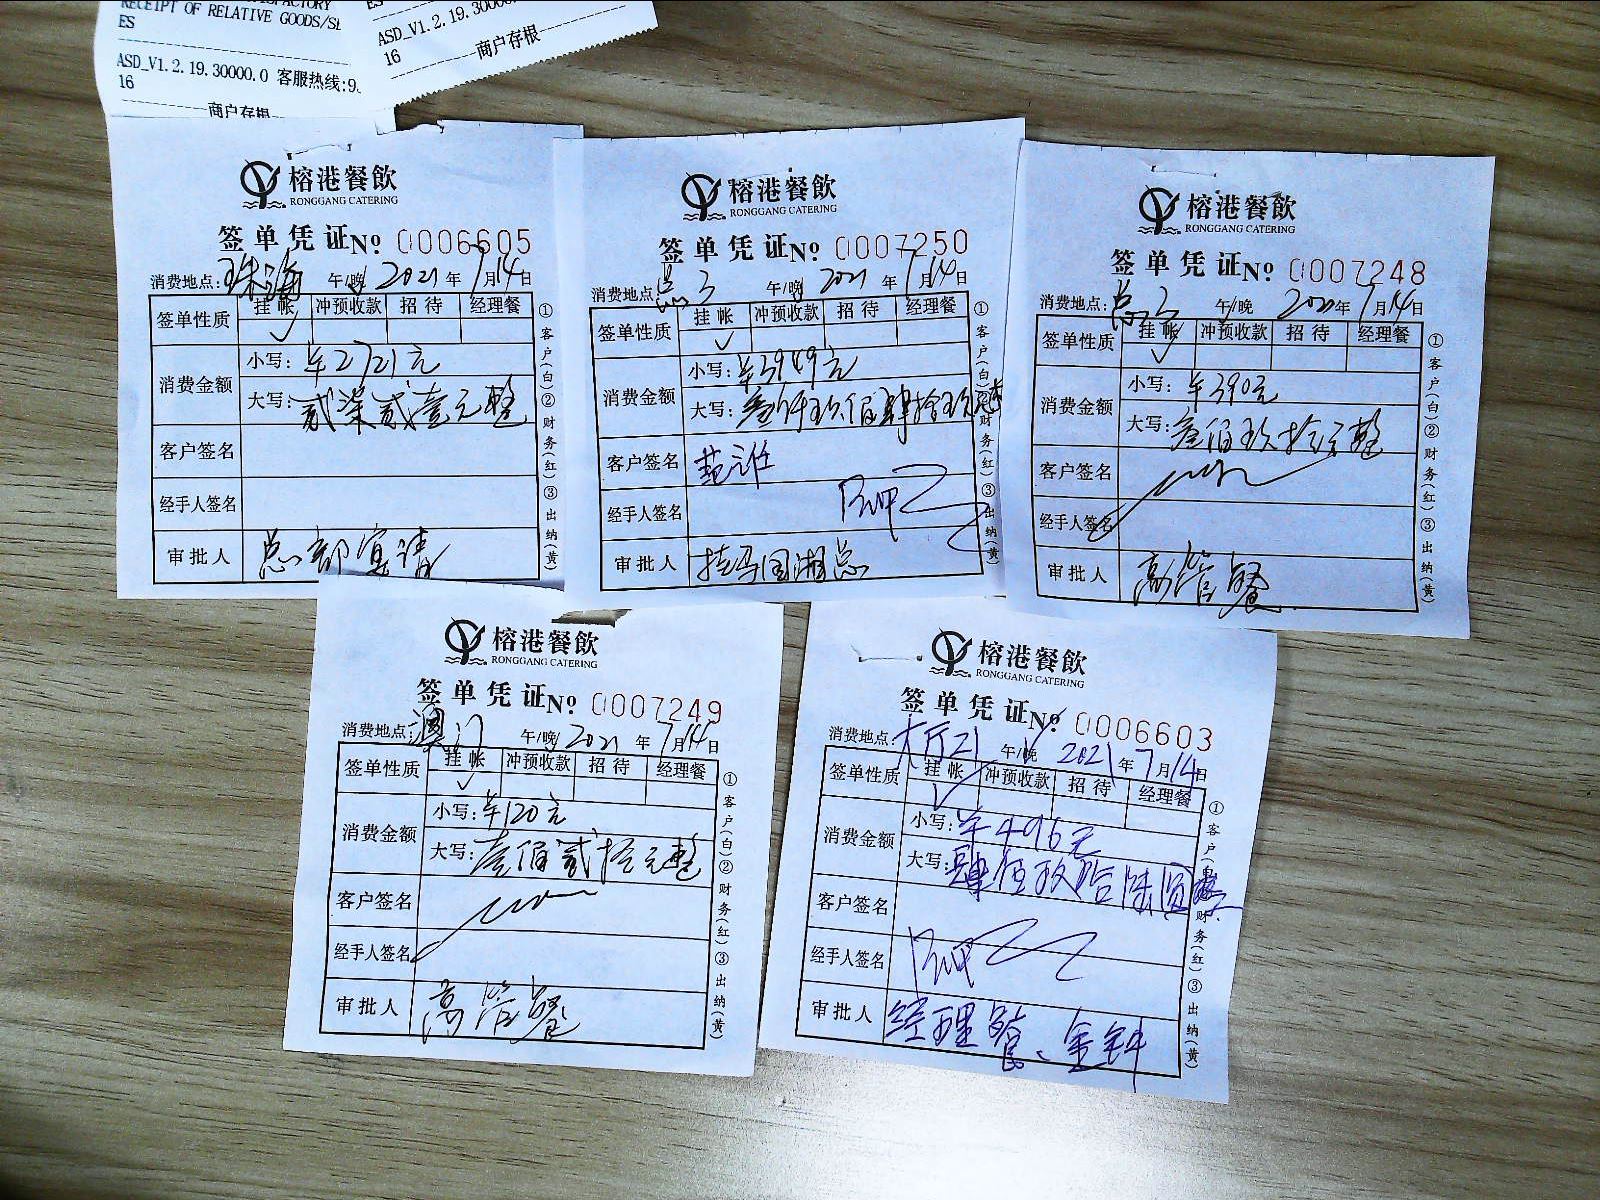 RECEIPT OF RELATIVE GOODS/SE
ES
ASD_V1.2.19.30000.0 客服热线:9
16
商户存根
ASD_V1.2.19.30000
16
商户存根
榕港餐飲
RONGGANG CATERING
签单凭证№ 0006605
消费地点:珠海 午/晚 2021年7月14日
签单性质 挂帐 冲预收款 招待 经理餐
✓
消费金额 小写:¥2721元
大写:贰柒贰壹元整
客户签名
经手人签名
审批人 总部宴请
①客户(白)②财务(红)③出纳(黄)
榕港餐飲
RONGGANG CATERING
签单凭证№ 0007250
消费地点:总3 午/晚 2021年7月14日
签单性质 挂帐 冲预收款 招待 经理餐
✓
消费金额 小写:¥3949元
大写:叁仟玖佰肆拾玖元整
客户签名
经手人签名
审批人 挂冯国湘总
①客户(白)②财务(红)③出纳(黄)
榕港餐飲
RONGGANG CATERING
签单凭证№ 0007248
消费地点:总3 午/晚 2021年7月14日
签单性质 挂帐 冲预收款 招待 经理餐
✓
消费金额 小写:¥390元
大写:叁佰玖拾元整
客户签名
经手人签名
审批人 高管餐
①客户(白)②财务(红)③出纳(黄)
榕港餐飲
RONGGANG CATERING
签单凭证№ 0007249
消费地点:澳门 午/晚 2021年7月14日
签单性质 挂帐 冲预收款 招待 经理餐
✓
消费金额 小写:¥120元
大写:壹佰贰拾元整
客户签名
经手人签名
审批人 高管餐
①客户(白)②财务(红)③出纳(黄)
榕港餐飲
RONGGANG CATERING
签单凭证№ 0006603
消费地点:大厅21 午/晚 2021年7月14日
签单性质 挂帐 冲预收款 招待 经理餐
✓
消费金额 小写:¥496元
大写:肆佰玖拾陆圆整
客户签名
经手人签名
审批人 经理餐、金钟
①客户(白)②财务(红)③出纳(黄)